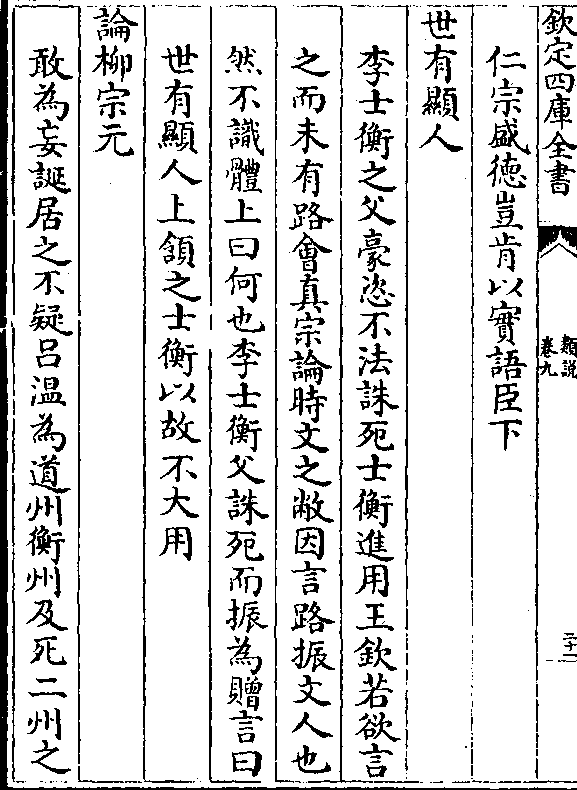 欽定四庫全書
類說
卷九
二十二
仁宗盛徳豈肯以實語臣下
世有顯人
李士衡之父豪恣不法誅死士衡進用王欽若欲言
之而未有路會真宗論時文之敝因言路振文人也
然不識體上曰何也李士衡父誅死而振為贈言曰
世有顯人上頷之士衡以故不大用
論柳宗元
敢為妄誕居之不疑吕温為道州衡州及死二州之